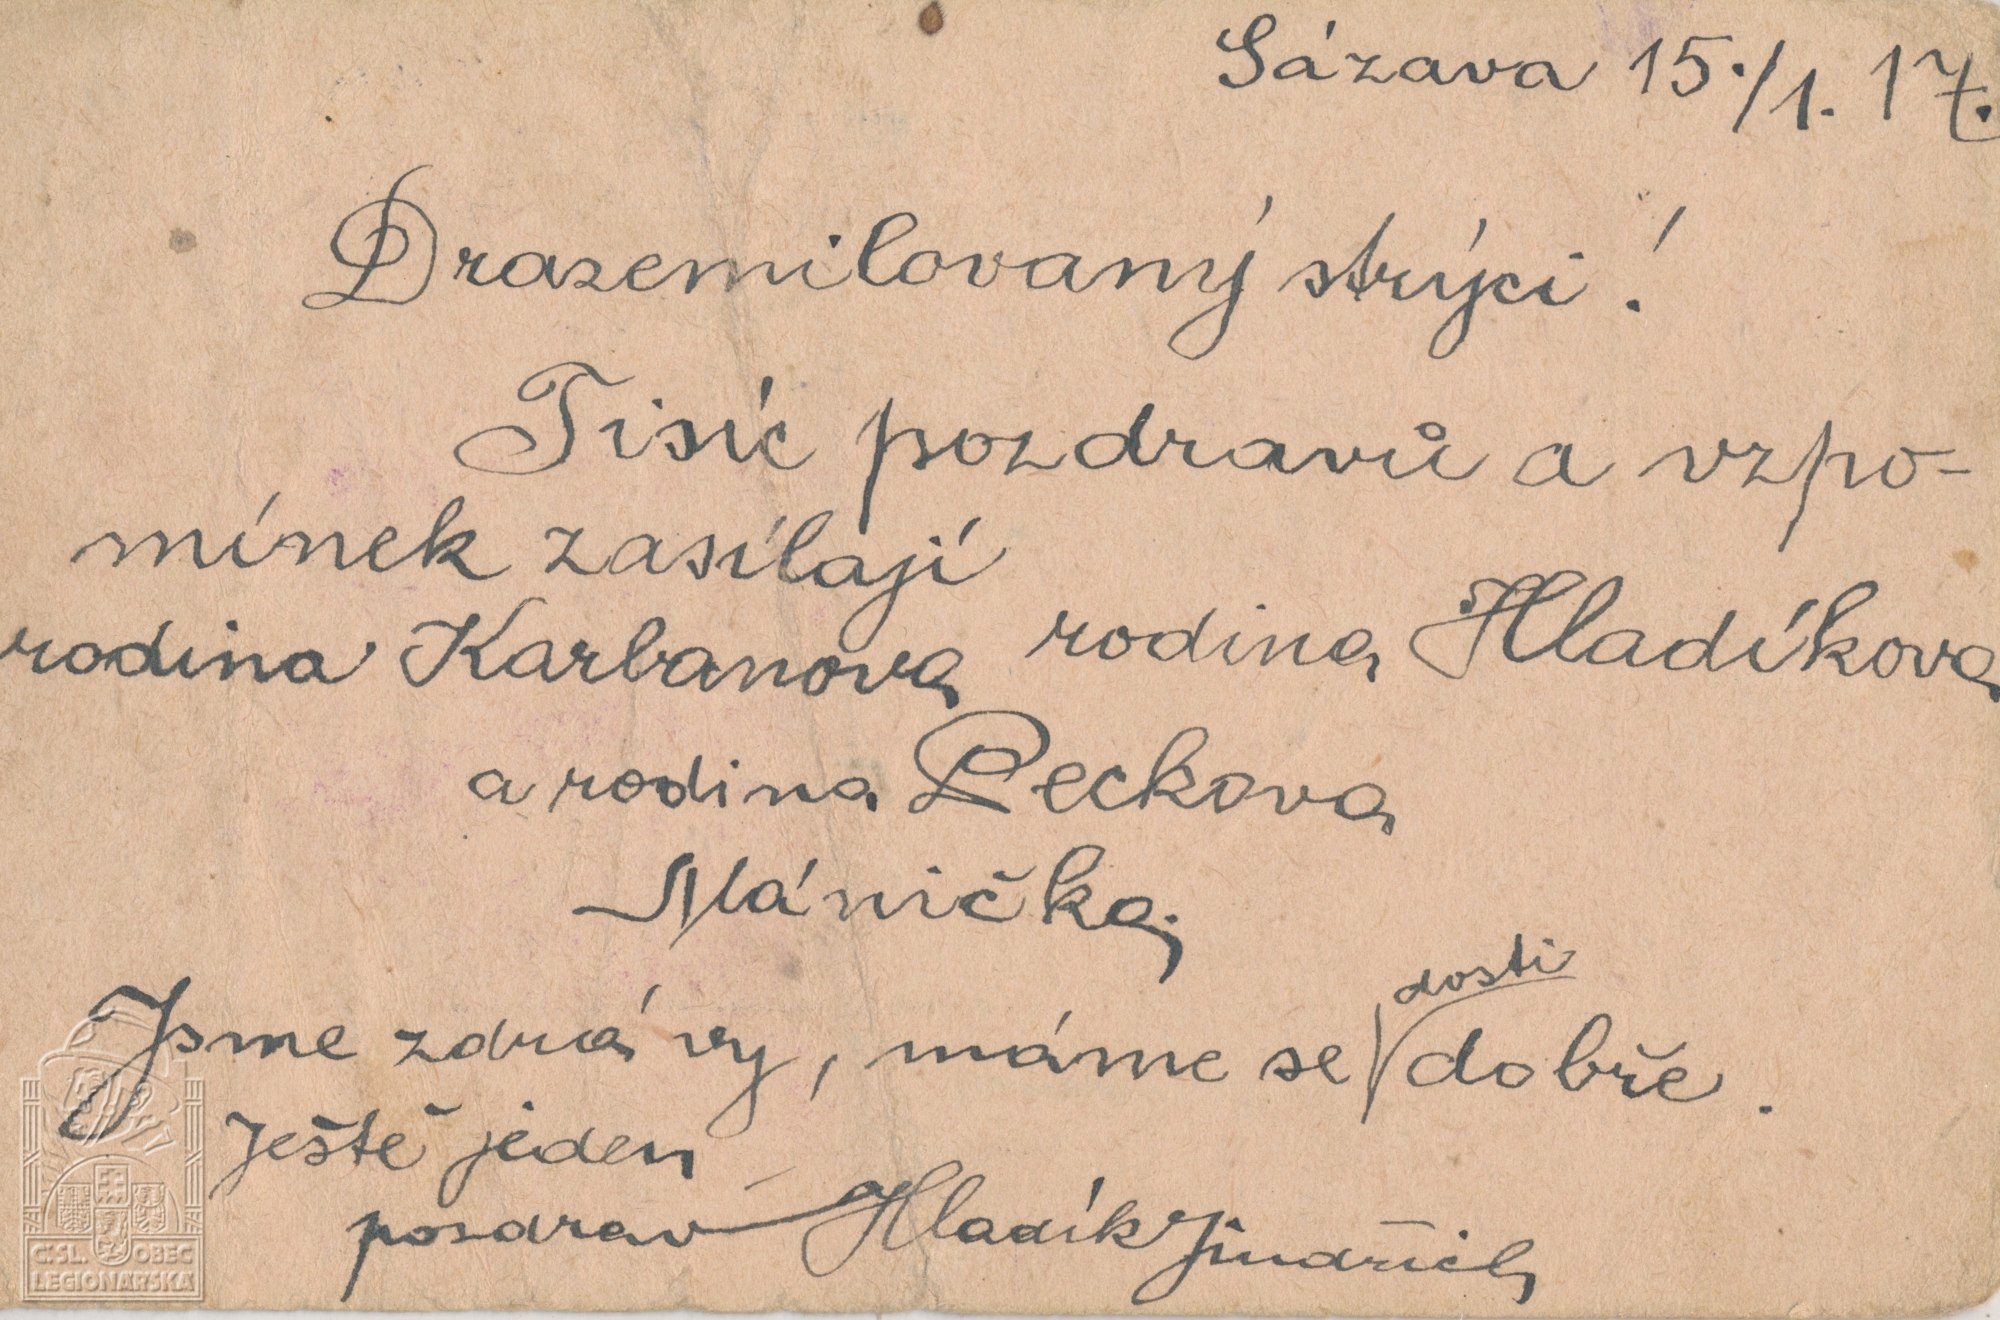 Sázava 15./1. 17.
Drazemilovaný strýci!
Tisíc pozdravů a vzpo-
mínek zasílají
rodina Karbanova rodina Hladíkova
a rodina Peckova
Mánička;
dosti
Jsme zdrávy, máme se dobře.
Ještě jeden
pozdrav Hladík Jindřich
ČSL. OBEC
LEGIONÁŘSKÁ